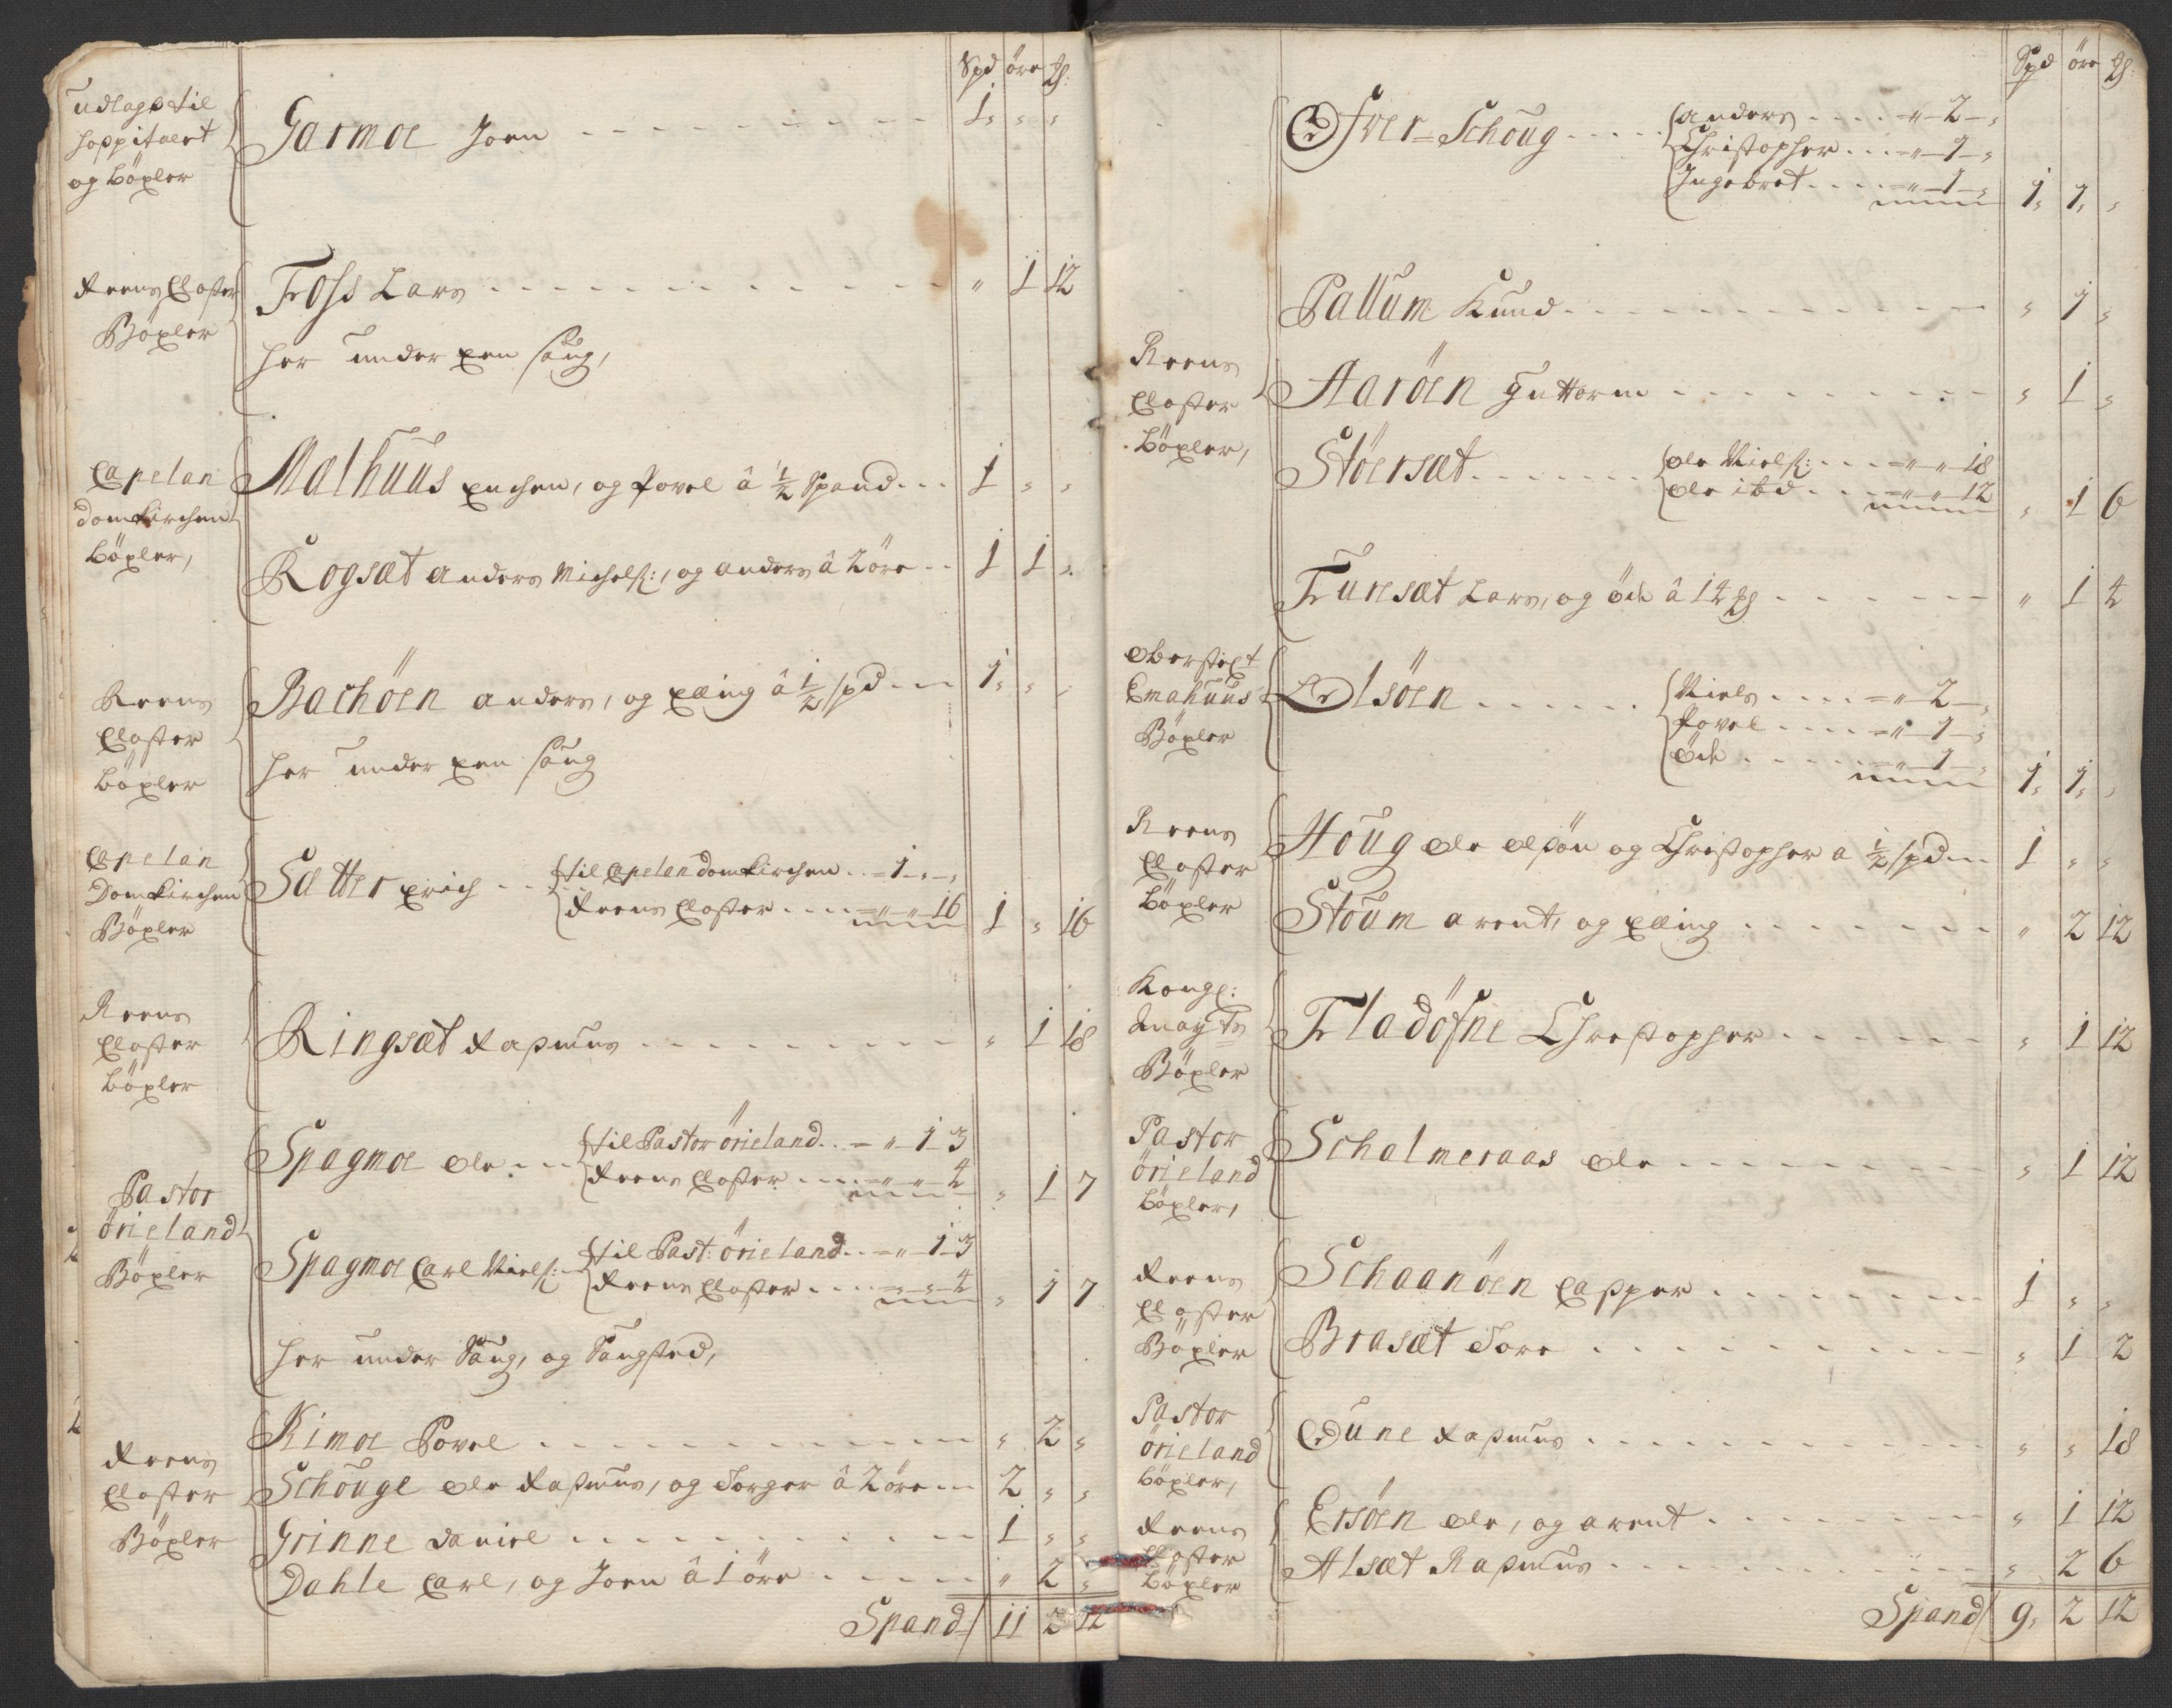 Spd öre ƺ:
udlagt til
hoppitaert
og Böxler
Garmoe Joen - - - - - 1 " "
Reens Closter
Böxler
Foss Lars - - - - - " 1 12
her under een saug,
Capelan
domkirchen
Böxler,
Malhuus enchen, og Povel â ½ Spand - - - 1 " "
Rogsæt anders Michelss:, og anders â 2 öre - - 1 1 "
Reens
Closter
Böxler
Bachöen anders, og Elling â ½ spd - - - 1 " "
her under een saug
Capelan
Domkirchen
Böxler
Sætter Erich - - til Capelan domkirchen - - 1 " "
Reens Closter - - - - " " 16 1 " 16
Reens
Closter
Böxler
Ringsæt Rasmus - - - - - " 1 18
Pastor
örieland
Böxler
Spagmoe Ole - - - til Pastor örieland - - " 1 3
Reens Closter - - - " " 4 " 1 7
Spagmoe Carl Nielss: - til Past: örieland - - " 1 3
Reens Closter - - - " " 4 " 1 7
her under Saug, og Saugsted,
Reens
Closter
Böxler
Kimoe Povel - - - - - " 2 "
Schouge Ole Rasmus, og Torger â 2 öre - - - 2 " "
Grinne Daniel - - - - - 1 " "
Dahle Carl, og Joen â 1 öre - - - - - " 2 "
Spand 11 2 12
Spd öre ƺ:
Ofver-Schoug - - - - anders - - - - " 2 "
Christopher - - - " 1 "
Ingebret - - - - " 1 " 1 1 "
Pallum Knud - - - - - " 1 "
Reens
Closter
Böxler,
Aaröen Guttorm - - - - - " 1 "
Stöersæt - - - - - Ole Nielss: - - - " " 18
Ole ibd - - - " " 12 " 1 6
Tunesæt Lars, og Öde â 14 ƺ - - - - - " 1 4
Oberstlet
Emahuus
Böxler
Olsöen - - - - - Niels - - - - " 2 "
Povel - - - - " 1 "
Öde - - - - " 1 " 1 1 "
Reens
Closter
Böxler
Houg Ole Olsön og Christopher a ½ spd - - 1 " "
Stoum arent, og Elling - - - - - " 2 12
Kongl:
Mayts
Böxler
Fladöfne Chrestopher - - - - - " 1 12
Pastor
örieland
Böxler,
Schalmeraas Ole - - - - - " 1 12
Reens
Closter
Böxler
Schaanöen Casper - - - - - 1 " "
Brasæt Tore - - - - - " 1 2
Pastor
örieland
Böxler,
Dune Rasmus - - - - - " " 18
Reens
Closter
Böxler
Ersöen Ole, og arent - - - - - " 1 12
Alsæt Rasmus - - - - - " 2 6
Spand 9 2 12